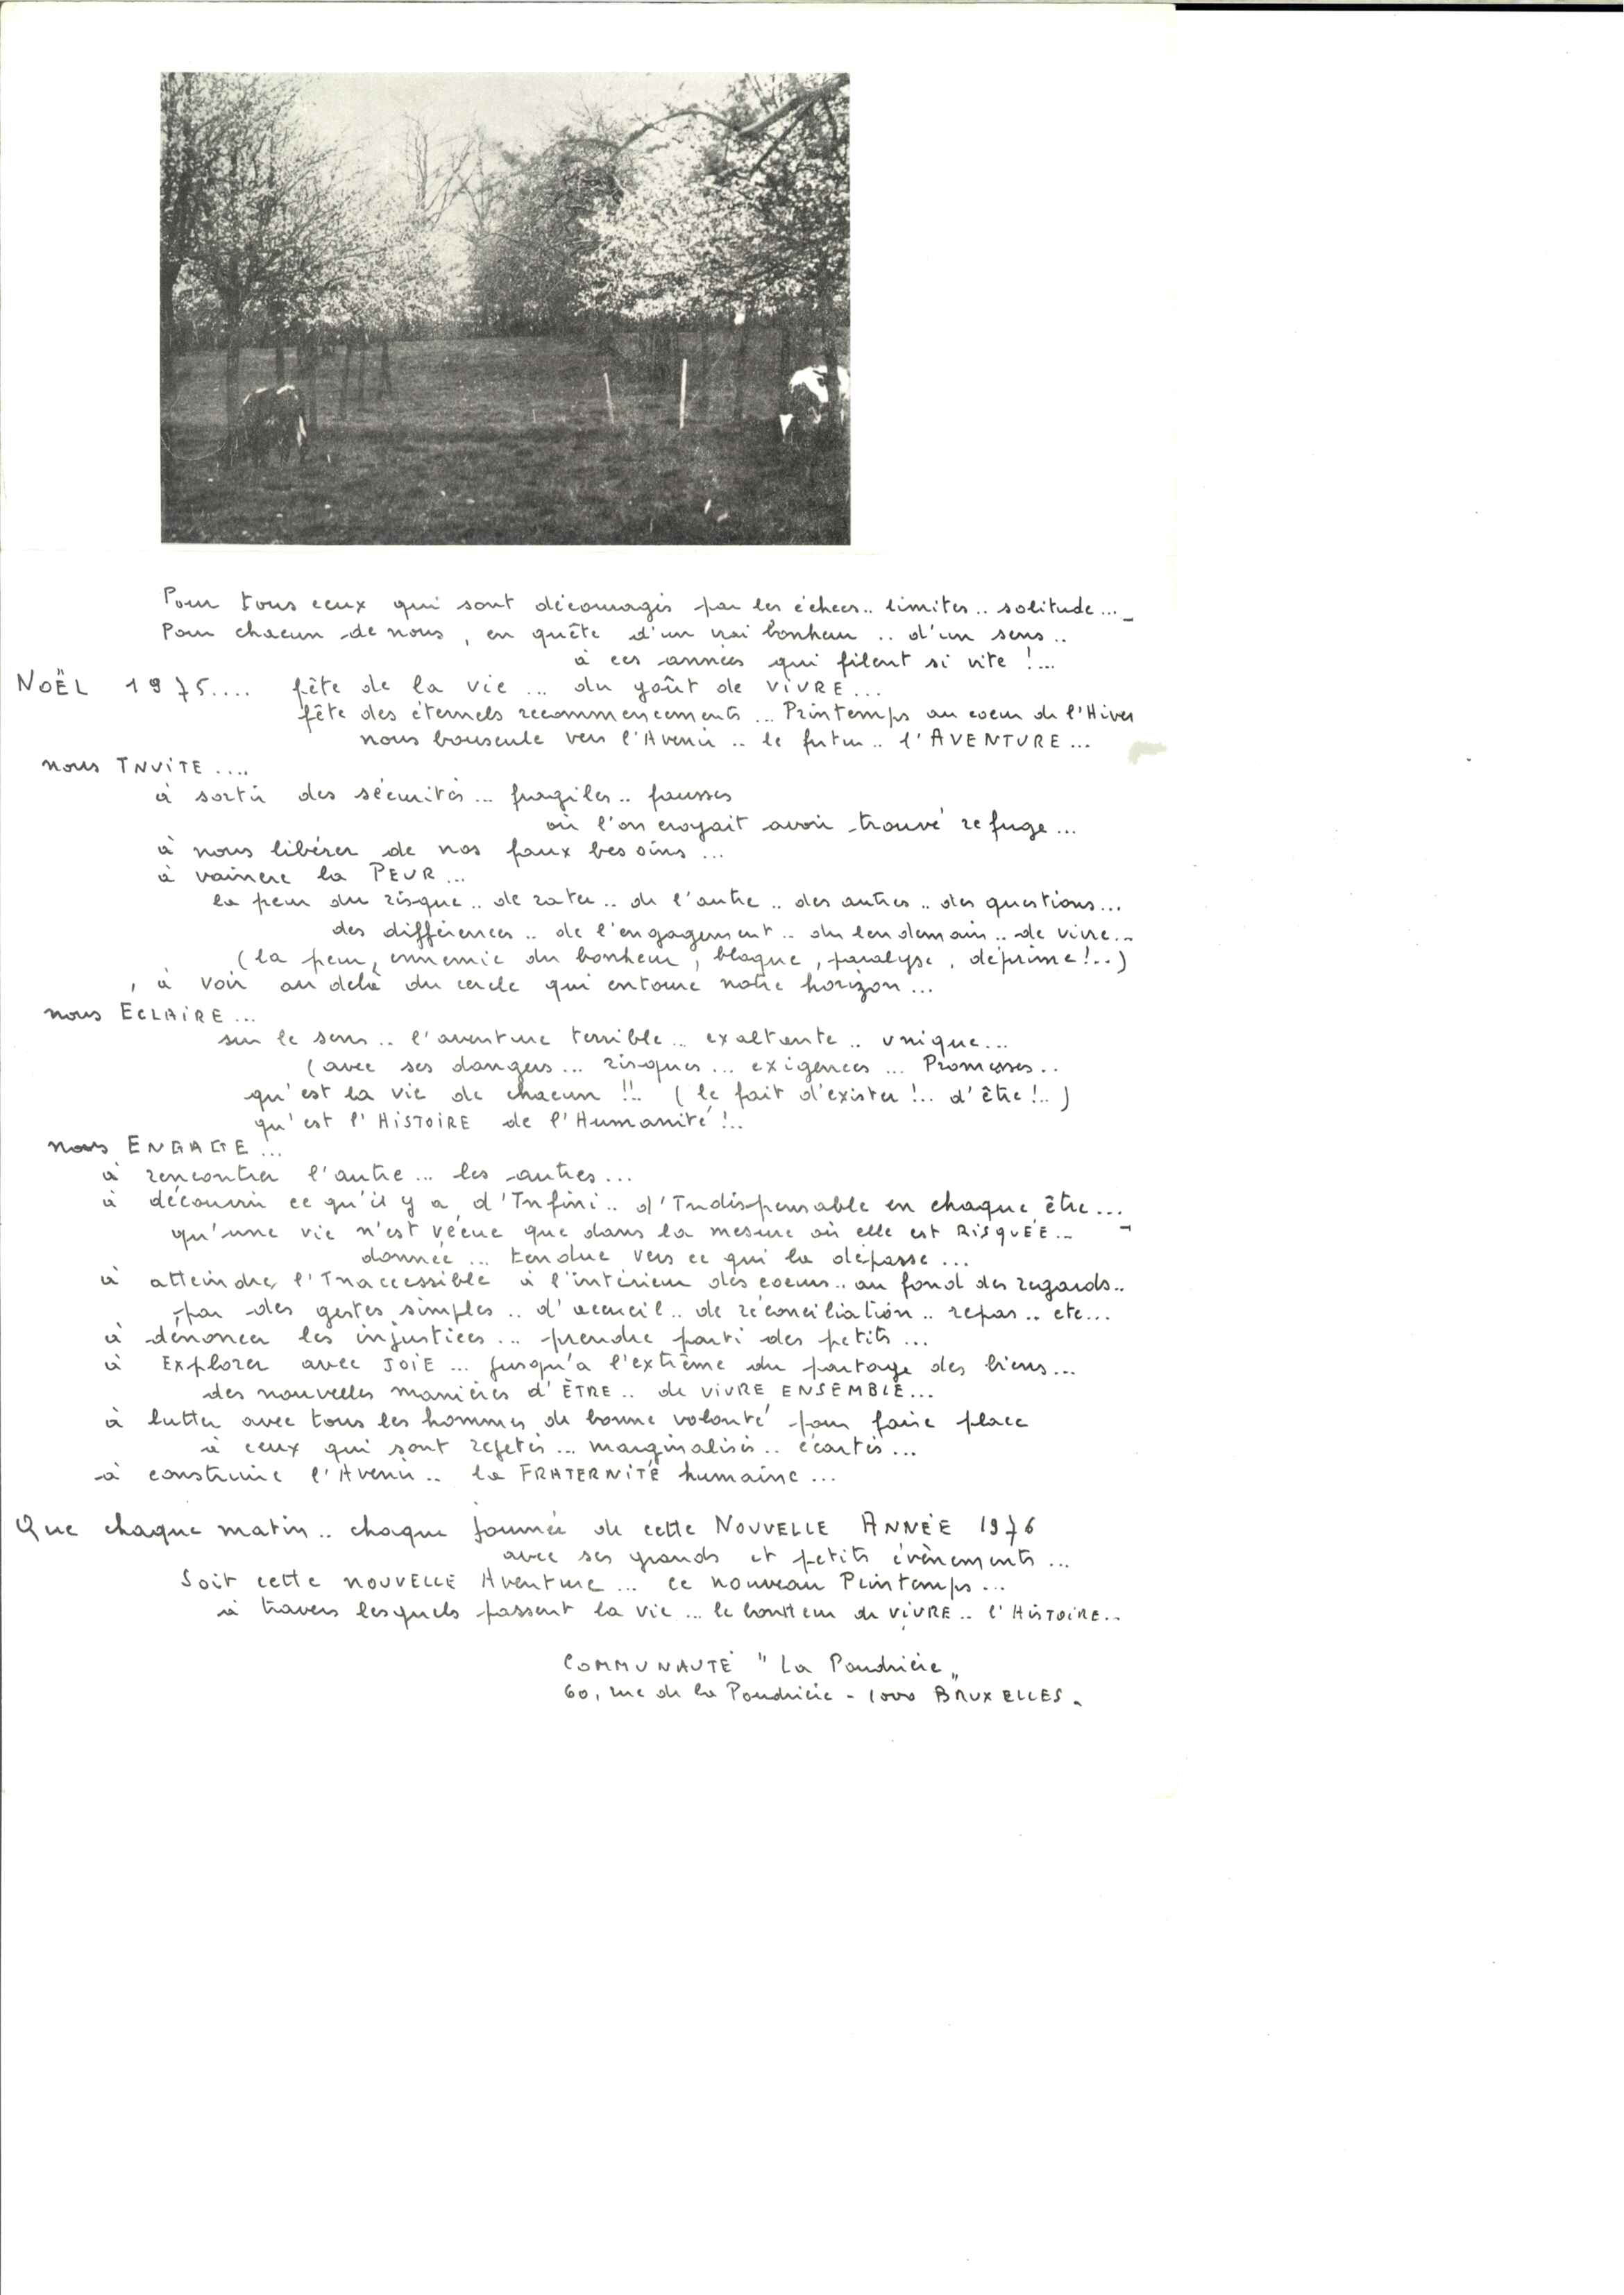 Pour tous ceux qui sont découragés par les échecs.. limites.. solitude...
Pour chacun de nous, en quête d'un vrai bonheur .. d'un sens..
à ces années qui filent si vite !...
NOËL 1975.... fête de la vie ... du goût de VIVRE...
fête des éternels recommencements ... Printemps au coeur de l'Hiver
nous bouscule vers l'Avenir .. le futur .. l'AVENTURE...
nous INVITE ....
à sortir des sécurités ... fragiles .. fausses
où l'on croyait avoir trouvé refuge...
à nous libérer de nos faux besoins ...
à vaincre la PEUR ...
la peur du risque .. de rater .. de l'autre .. des autres .. des questions...
des différences .. de l'engagement .. du lendemain .. de vivre..
(la peur, ennemie du bonheur, bloque, paralyse, déprime !..)
à voir au delà du cercle qui entoure notre horizon ...
nous ECLAIRE ...
sur le sens .. l'aventure terrible ... exaltante .. unique...
(avec ses dangers ... risques ... exigences ... Promesses..
qu'est la vie de chacun !!. (le fait d'exister !.. d'être !..)
qu'est l'HISTOIRE de l'Humanité !..
nous ENGAGE ...
à rencontrer l'autre ... les autres ...
à découvrir ce qu'il y a d'Infini .. d'Indispensable en chaque être ...
qu'une vie n'est vécue que dans la mesure où elle est RISQUÉE ..
donnée ... tendue vers ce qui la dépasse ...
à atteindre l'Inaccessible à l'intérieur des coeurs .. au fond des regards..
par des gestes simples .. d'accueil .. de réconciliation .. repas .. etc...
à dénoncer les injustices ... prendre parti des petits ...
à Explorer avec JOIE ... jusqu'à l'extrême du partage des biens ...
des nouvelles manières d'ÊTRE .. de VIVRE ENSEMBLE...
à lutter avec tous les hommes de bonne volonté pour faire place
à ceux qui sont rejetés ... marginalisés .. écartés ...
à construire l'Avenir .. la FRATERNITÉ humaine ...
Que chaque matin .. chaque journée de cette NOUVELLE ANNÉE 1976
avec ses grands et petits évènements ...
Soit cette NOUVELLE Aventure ... ce nouveau Printemps ...
à travers lesquels passent la vie ... le bonheur de VIVRE .. l'HISTOIRE..
COMMUNAUTÉ "La Poudrière"
60, rue de la Poudrière - 1000 BRUXELLES.